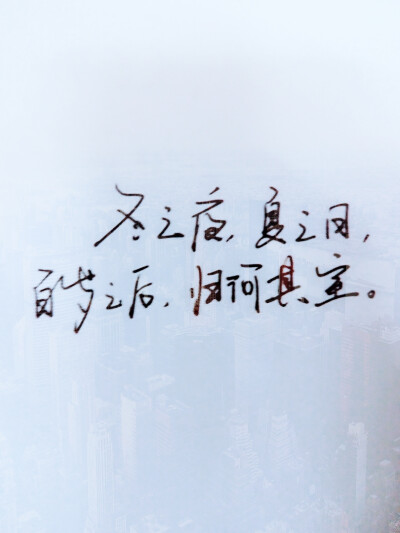 冬之夜,夏之日,
百岁之后,归何其室。